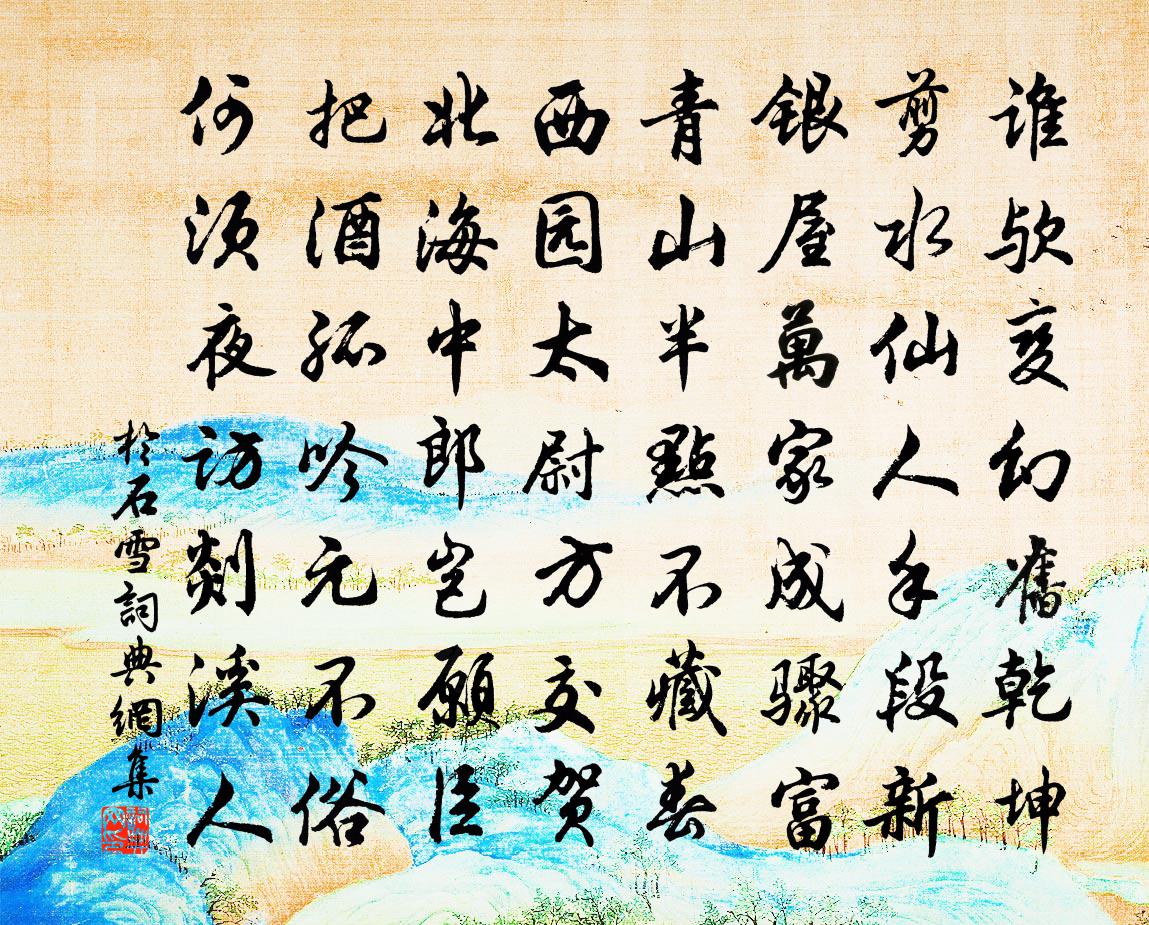 谁欤变幻旧乾坤
剪水仙人手段新
银屋萬家成骤富
青山半點不藏春
西园太尉方交贺
北海中郎岂願臣
把酒孤吟元不俗
何须夜访剡溪人
於石雪詞典網集